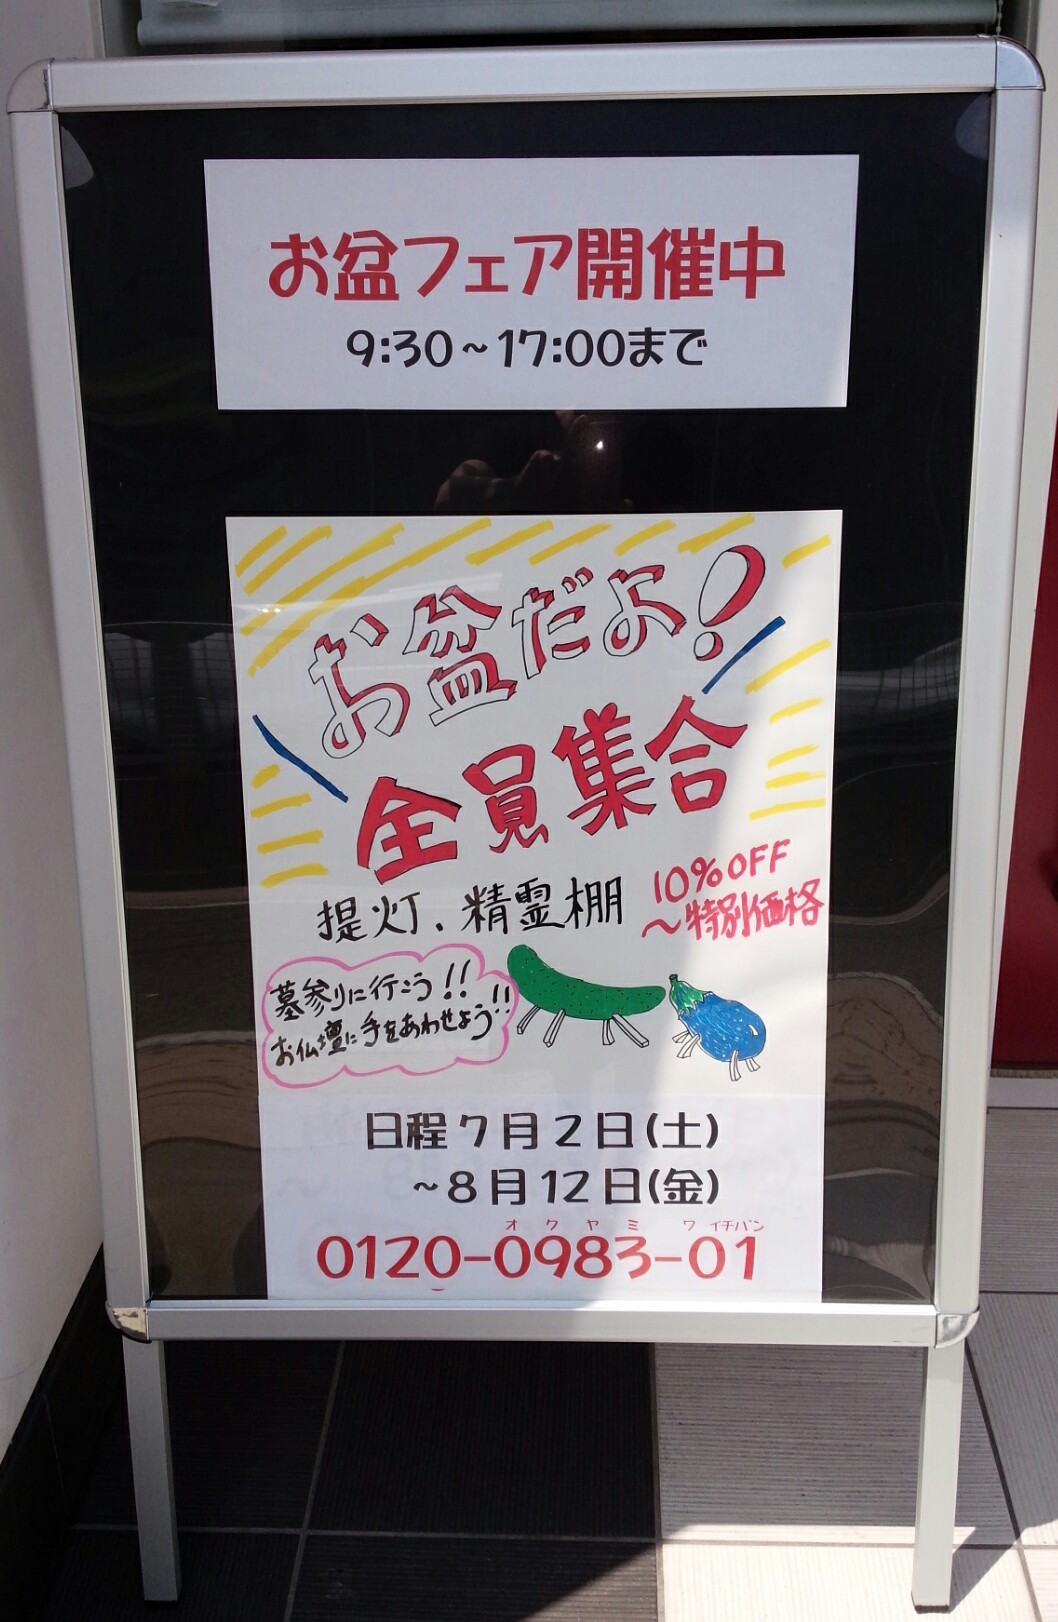 お盆フェア開催中
9:30~17:00まで
お盆だよ!
全員集合
提灯、精霊棚
10%OFF
~特別価格
墓参りに行こう!!
お仏壇に手をあわせよう!!
日程7月2日(土)
~8月12日(金)
オクヤミ ワイチバン
0120-0983-01